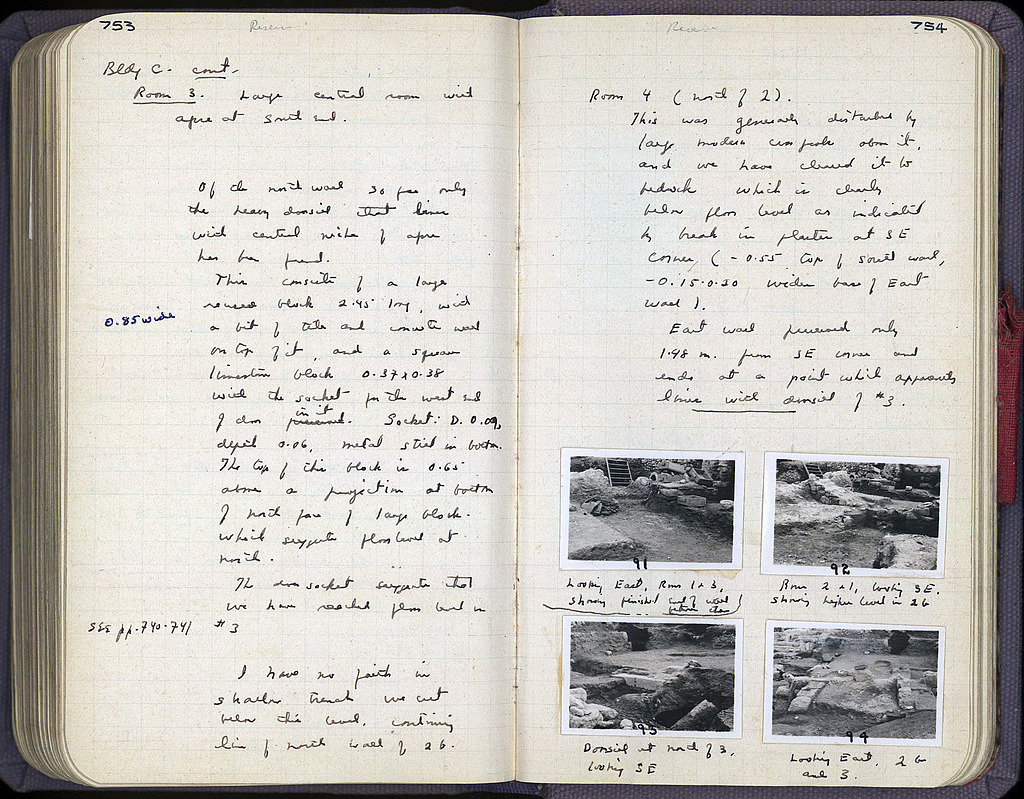 753
Bldg C - cont.
Room 3. Large central room with
apse at South End.
Of the north wall so far only
the heavy doorsill that lines
with central niche of apse
has been found.
This consists of a large
reused block 2.45 long, with
0.85 wide
a bit of tile and concrete wall
on top of it, and a square
limestone block 0.37 x 0.38
with the socket for the west end
of door in it. Socket: D. 0.09,
depth 0.06, metal still in bottom.
The top of this block is 0.65
above a projection at bottom
of north face of large block.
which suggests floor level at
north.
The door socket suggests that
we have reached floor level in
SEE pp. 740-741 #3
I have no faith in
shallow trench we cut
below this level, continuing
line of north wall of 26.
754
Room 4 (north of 2).
This was generally disturbed by
large modern cesspool above it,
and we have cleared it to
bedrock which is clearly
below floor level as indicated
by break in plaster at SE
corner, (-0.55 top of south wall,
-0.15-0.20 wider base of East
wall).
East wall preserved only
1.98 m. from SE corner and
ends at a point which apparently
lines with doorsill of #3.
91
Looking East, Rms 1+3,
showing finished end of wall
between them
92
Rms 2+1, looking SE.
showing higher level in 26
93
Doorsill at north of 3,
looking SE
94
Looking East, 26
and 3.